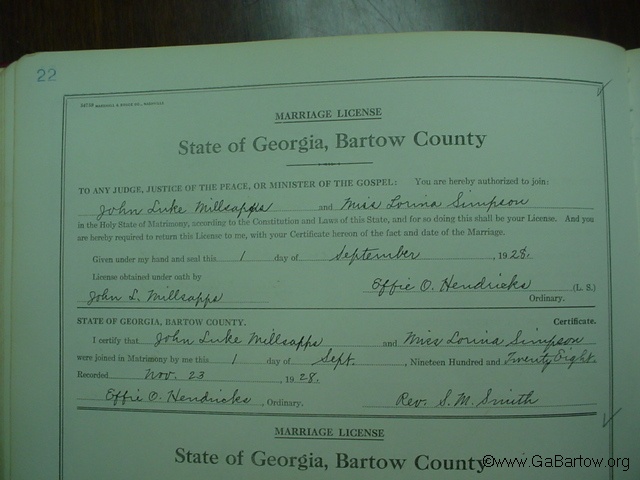 22
MARRIAGE LICENSE
State of Georgia, Bartow County
TO ANY JUDGE, JUSTICE OF THE PEACE, OR MINISTER OF THE GOSPEL: You are hereby authorized to join:
John Luke Millsapps and Miss Lorina Simpson
in the Holy State of Matrimony, according to the Constitution and Laws of this State, and for so doing this shall be your License. And you
are hereby required to return this License to me, with your Certificate hereon of the fact and date of the Marriage.
Given under my hand and seal this 1 day of September, 1928.
License obtained under oath by
Effie O. Hendricks (L. S.)
John L. Millsapps Ordinary.
STATE OF GEORGIA, BARTOW COUNTY. Certificate.
I certify that John Luke Millsapps and Miss Lorina Simpson
were joined in Matrimony by me this 1 day of Sept., Nineteen Hundred and Twenty Eight.
Recorded Nov. 23, 1928.
Effie O. Hendricks, Ordinary. Rev. S. M. Smith
MARRIAGE LICENSE
State of Georgia, Bartow County
©www.GaBartow.org